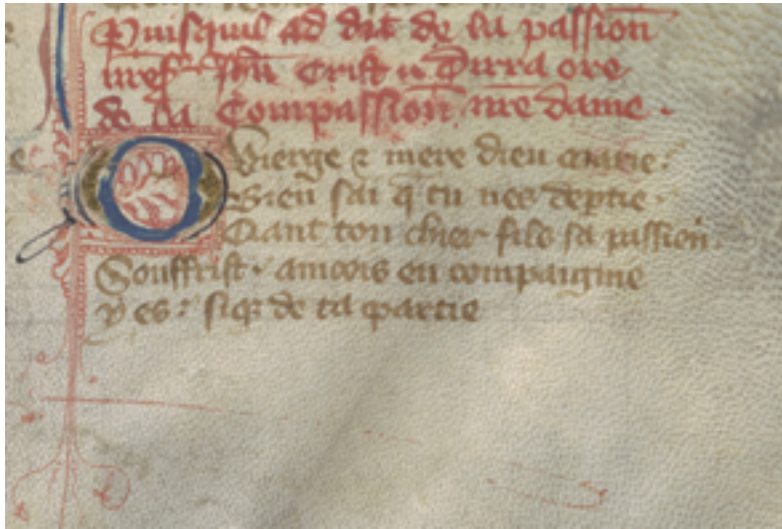 Puisquil ad dit de la passion
nre sr Ihu Crist il dirra ore
de la Compassion nre dame .
O Vierge & mere dieu marie :
Bien sai q̄ tu nes deptie .
Qant ton chier fils sa passion .
Souffrist . amcois en compaignie
y es : siq̄ de ta partie